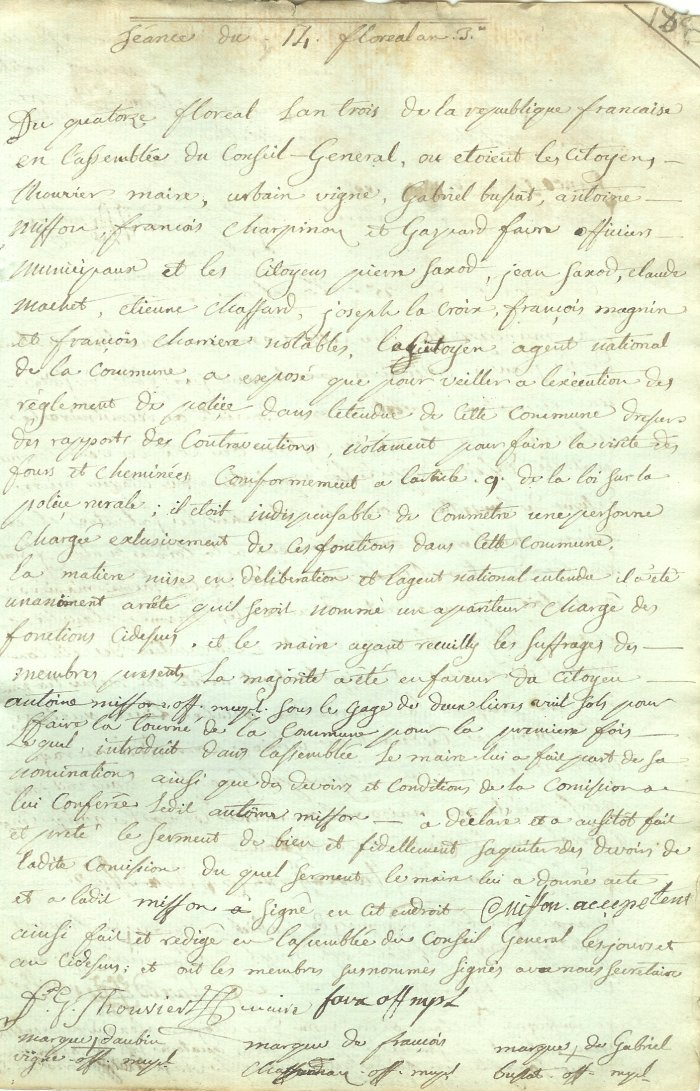 Séance du 14. floreal an 3.e
Du quatorze floreal L'an trois de la republique francaise
en l'assemblée du Conseil-General, ou etoient les Citoyens
thouvier maire, urbain vigne, Gabriel bussat, antoine
misson, françois Charpinau et Gaspard favre officiers
Municipaux et les Citoyens pierre Saxod, jean Saxod, claude
machet, etienne Chaffard, joseph la Croix, françois magnin
et françois charriere notables, le Citoyen agent national
de la Commune, a exposé que pour veiller a l'exécution des
réglement de police dans létendue de Cette Commune dresser
des rapports des Contraventions, notament pour faire la visite des
fours et Cheminées Comformement a larticle .9. de la loi sur la
police rurale; il étoit indispensable de Commetre une personne
Chargée exlusivement de ces fonctions dans Cette Commune.
la matière mise en déliberation et l'agent national entendu il a été
unaniment arrêté quil seroit nommé un apariteur Chargé des
fonctions Cidesus, et le maire ayant recuilly les suffrages des
membres presents, La majorité a été en faveur du Citoyen
antoine misson off. mupl. sous le gage de deux livres huit sols pour
faire la tourné de la Commune pour la premiere fois
Lequel introduit dans l'assemblée Le maire lui a fait part de sa
nomination ainsi que des devoirs et Conditions de la Comission a
lui Conferée Ledit antoine misson a déclaré et a ausitot fait
et preté le serment de bien et fidellement saquiter des devoirs de
ladite Comission du quel serment le maire lui a donné acte
et a ledit misson signé en cet endroit misson acceptent
ainsi fait et redigé en l'assemblée du Conseil General les jours et
an Cidesus; et ont les membres susnommés signés avec nous secretaire
Thouvier maire favre off mpl
marque d'aubin marque de françois marque de Gabriel
vigne off. mupl off. mupl bussat off. mpl